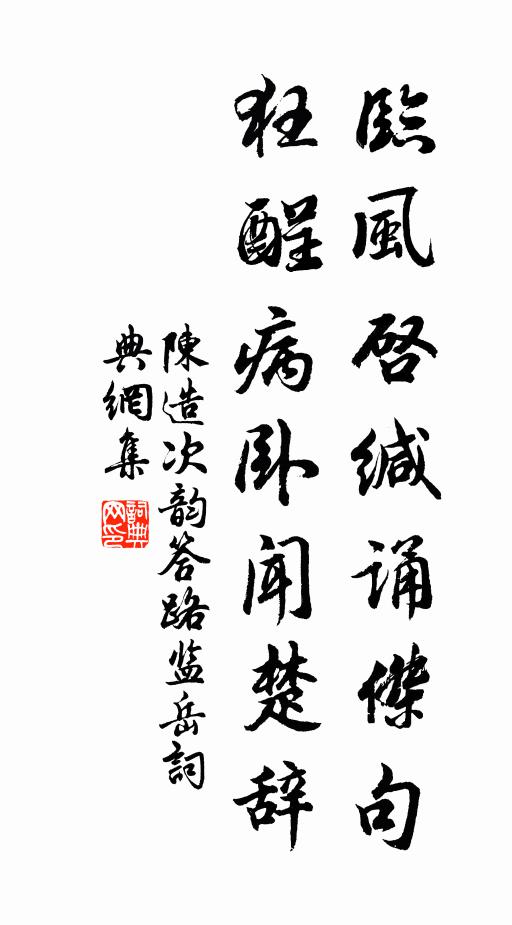 臨風啓緘誦傑句
狂醒病卧聞楚辞
陳造次韵答路监岳詞
典網集
詞典网印